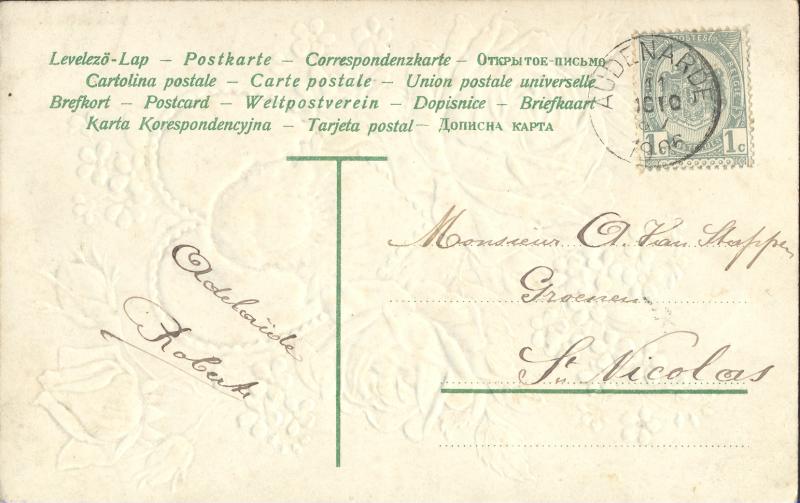 Levelező-Lap – Postkarte – Correspondenzkarte – Открытое-письмо
Cartolina postale – Carte postale – Union postale universelle
Brefkort – Postcard – Weltpostverein – Dopisnice – Briefkaart
Karta Korespondencyjna – Tarjeta postal – Дописна карта
AUDENARDE
11
1906
1c
Monsieur A. Van Stappen
Groenen
St. Nicolas
Adelaïde
Robert